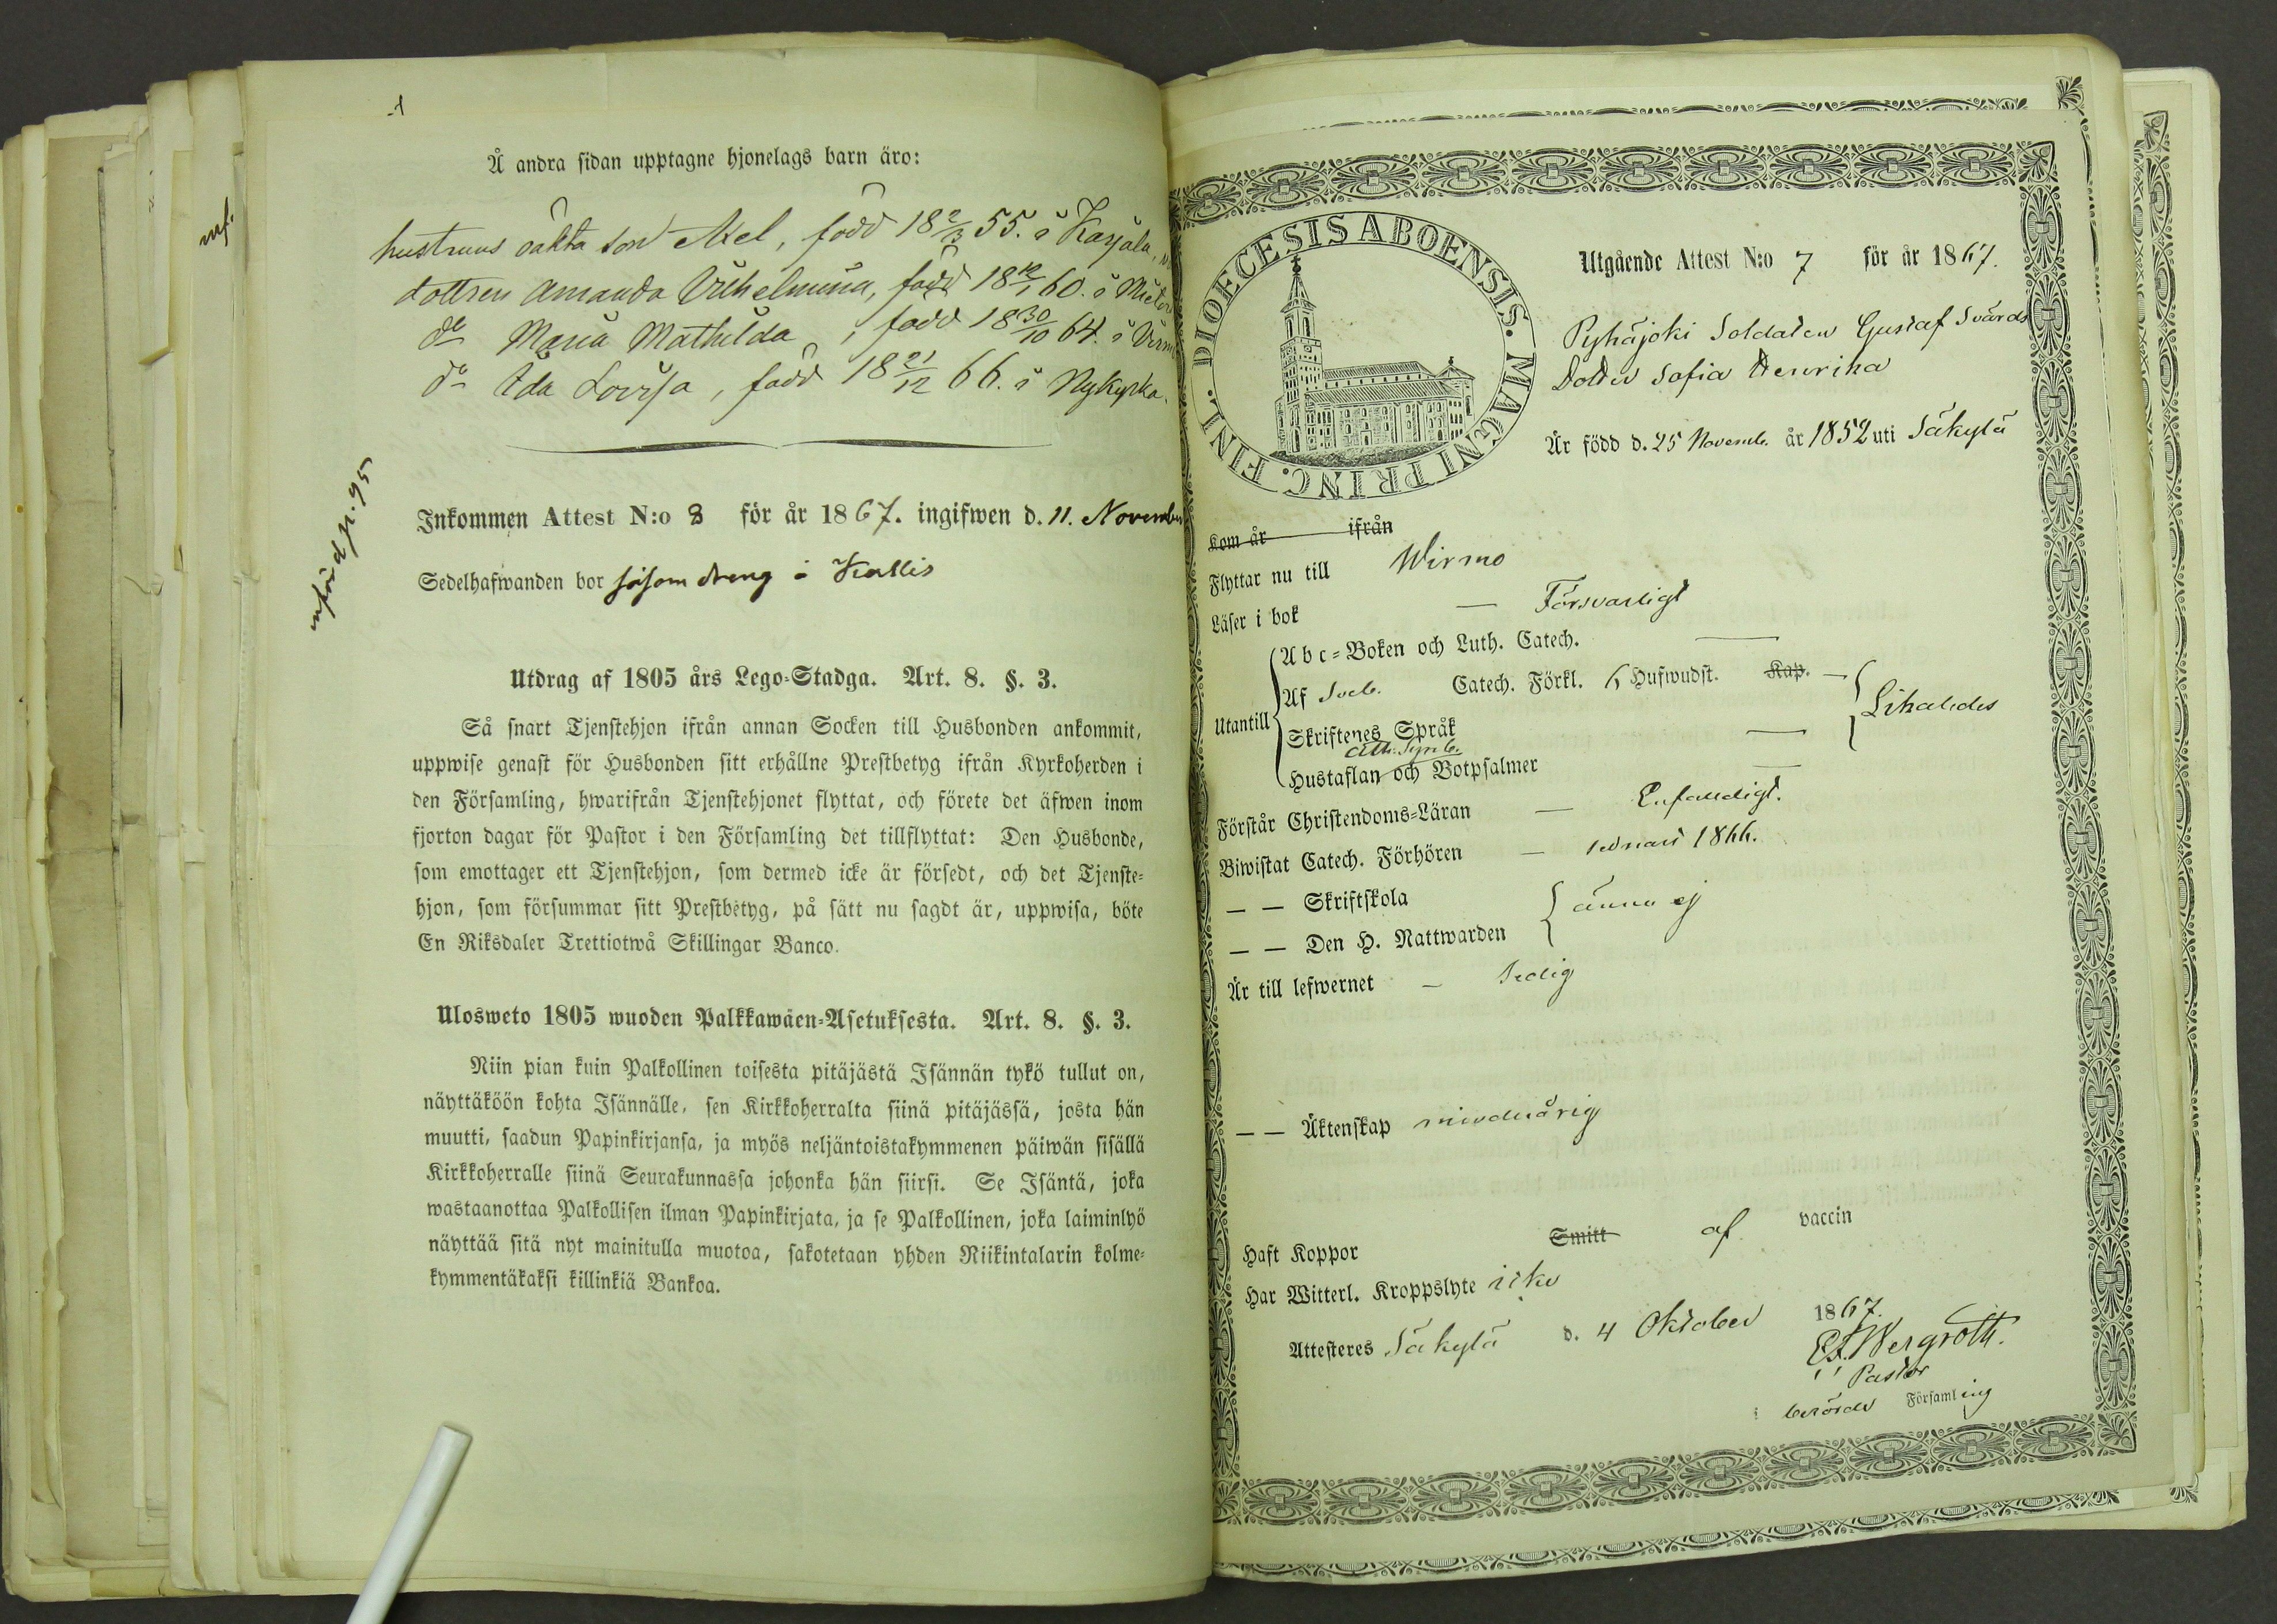 inf.
Å andra sidan upptagne hjonelags barn äro:
hustruns oäkta son Axel, född 18 2/3 55. i Karjala,
dottren Amanda Vilhelmina, född 18 12/1 60. i Mieto
do Maria Mathilda, född 18 30/10 64. i Virm
do Ida Lovisa, född 18 21/12 66. i Nykyrka.
införd p. 95
Inkommen Attest N:o 8 för år 1867. ingifwen d. 11. November
Sedelhafwanden bor såsom dreng i Kallis
Utdrag af 1805 års Lego-Stadga. Art. 8. §. 3.
Så snart Tjenstehjon ifrån annan Socken till Husbonden ankommit,
uppwise genast för Husbonden sitt erhållne Prestbetyg ifrån Kyrkoherden i
den Församling, hwarifrån Tjenstehjonet flyttat, och förete det äfwen inom
fjorton dagar för Pastor i den Församling det tillflyttat: Den Husbonde,
som emottager ett Tjenstehjon, som dermed icke är försedt, och det Tjenste-
hjon, som försummar sitt Prestbetyg, på sätt nu sagdt är, uppwisa, böte
En Riksdaler Trettiotwå Skillingar Banco.
Ulosweto 1805 wuoden Palkkawäen-Asetuksesta. Art. 8. §. 3.
Niin pian kuin Palkollinen toisesta pitäjästä Isännän tykö tullut on,
näyttäköön kohta Isännälle, sen Kirkkoherralta siinä pitäjässä, josta hän
muutti, saadun Papinkirjansa, ja myös neljäntoistakymmenen päiwän sisällä
Kirkkoherralle siinä Seurakunnassa johonka hän siirsi. Se Isäntä, joka
wastaanottaa Palkollisen ilman Papinkirjata, ja se Palkollinen, joka laiminlyö
näyttää sitä nyt mainitulla muotoa, sakotetaan yhden Riikintalarin kolme-
kymmentäkaksi killinkiä Bankoa.
DIOECESIS ABOENSIS. MAGNI PRINC. FINL.
Utgående Attest N:o 7 för år 1867.
Pyhäjoki Soldaten Gustaf Svärds
Dotter Sofia Henrika
Är född d. 25 Novemb. år 1852 uti Säkylä
Kom år ifrån
Flyttar nu till Wirmo
Läser i bok — Försvarligt
Utantill
Abc-Boken och Luth. Catech. —
Af Sveb. Catech. Förkl. 6 Hufwudst. Kap. —
Skriftenes Språk —
Ath. Symb.
Hustaflan och Botpsalmer —
Likaledes
Förstår Christendoms-Läran — Enfaldigt.
Biwistat Catech. Förhören — sednast 1866.
— — Skriftskola
— — Den H. Nattwarden
ännu ej
Är till lefwernet — Sedig
— — Äktenskap minderårig
Haft Koppor Smitt af vaccin
Har Witterl. Kroppslyte icke
Attesteres Säkylä d. 4 Oktober 1867.
Ef. Wergroth.
Pastor
i berörde Församling